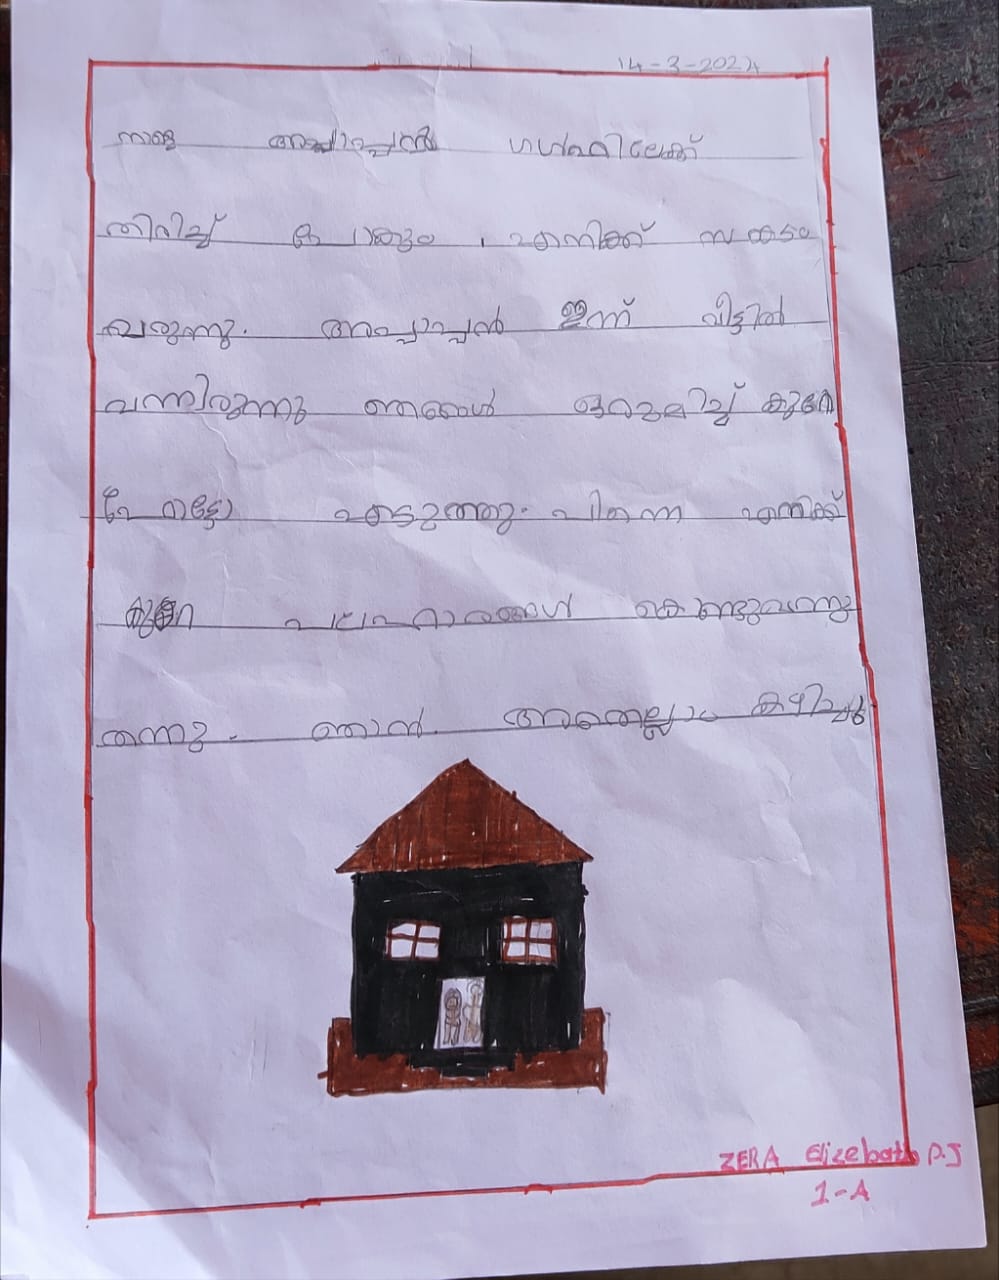 14-3-2024
നാളെ അപ്പാപ്പൻ ഗൾഫിലേക്ക്
തിരിച്ച് പോകും. എനിക്ക് സങ്കടം
വരുന്നു. അപ്പാപ്പൻ ഇന്ന് വീട്ടിൽ
വന്നിരുന്നു ഞങ്ങൾ ഒരുമിച്ച് കുറേ
ഫോട്ടോ എടുത്തു. പിന്നെ എനിക്ക്
കുറേ പലഹാരങ്ങൾ കൊണ്ടുവന്നു
തന്നു. ഞാൻ അതെല്ലാം കഴിച്ചു
ZERA Elizebath P.J
1-A